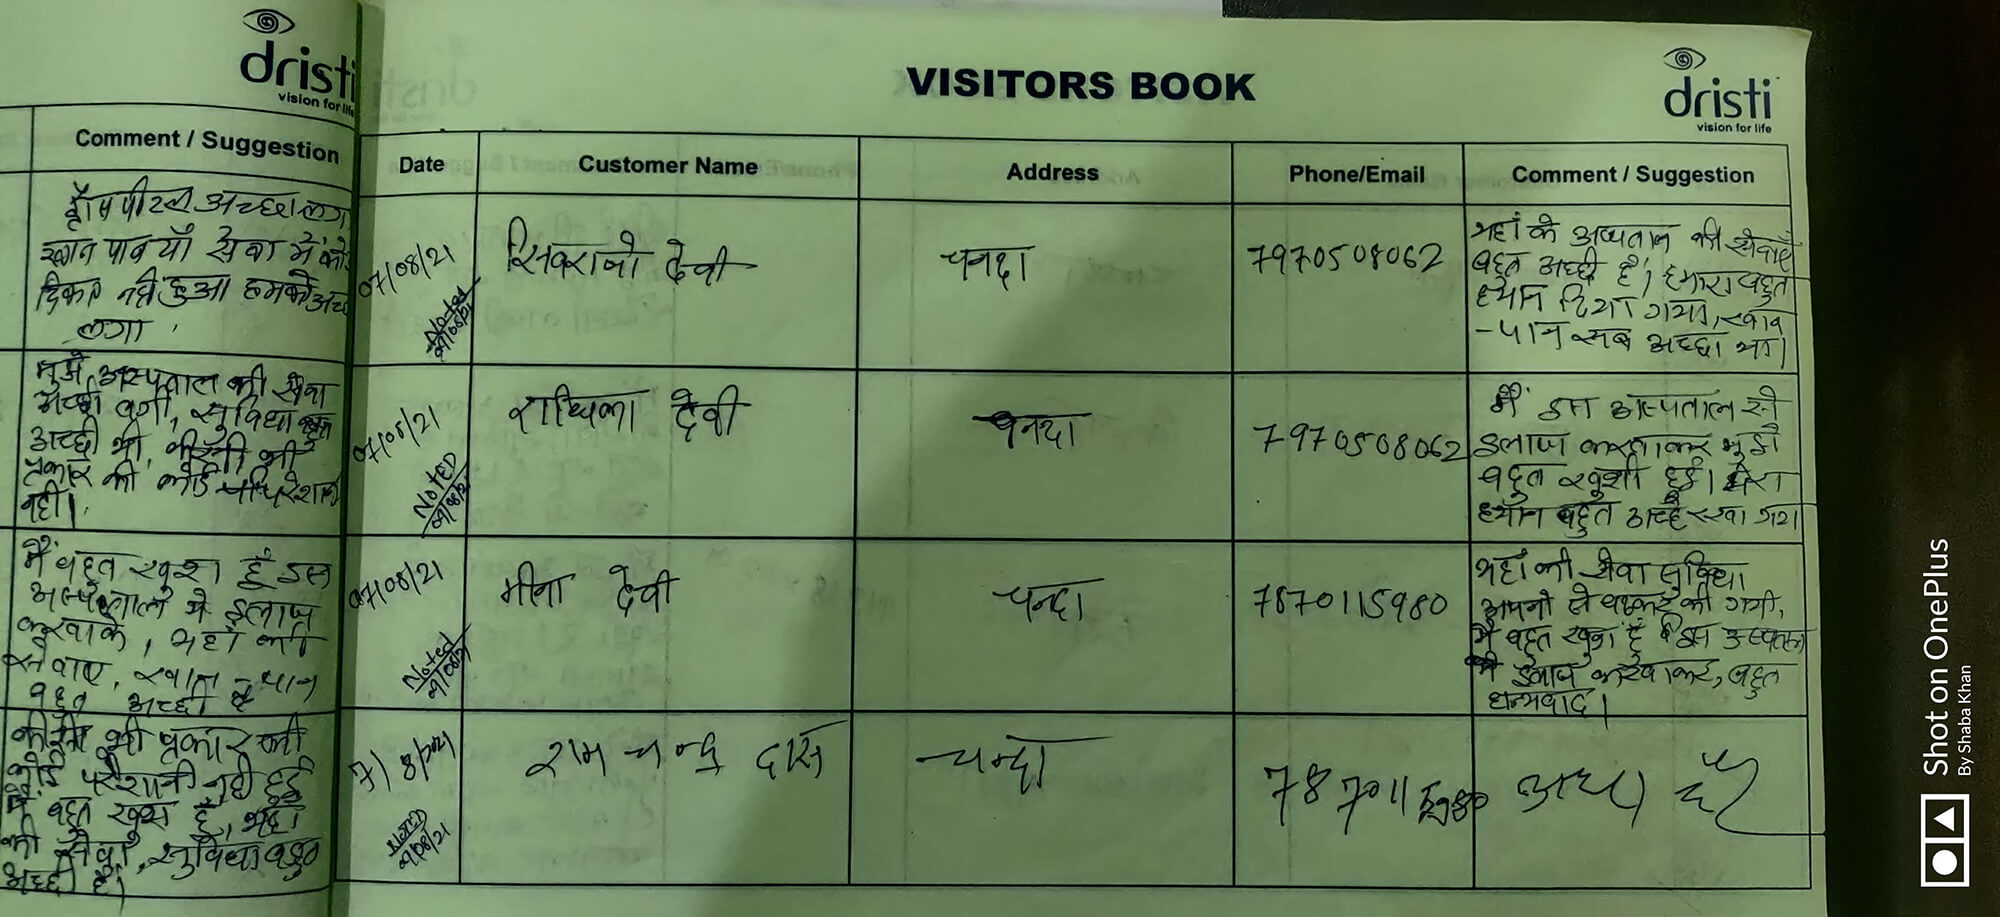 dristi
vision for life
Comment / Suggestion
हौसपीटल अच्छा लगा
खान पान याँ सेवा में कोई
दिकत नही हुआ हमको अच्छा
लगा
मुझे अस्पताल की सेवा
अच्छी लगी, सुविधा बहुत
अच्छी थी, किसी भी
प्रकार की कोई परेशानी
नही।
मैं बहुत खुश हूँ इस
अस्पताल में इलाज
करवाके, यहां की
सेवाए, खान-पान
बहुत अच्छी है
किसी भी प्रकार की
कोई परेशानी नही हुई
मैं बहुत खुश हूँ, यहां
की सेवा, सुविधा बहुत
अच्छी है।
VISITORS BOOK
dristi
vision for life
Date Customer Name Address Phone/Email Comment / Suggestion
07/08/21 देवी चनदा 7970508062
Noted
यहां के अस्पताल की सेवाएँ
बहुत अच्छी है, हमारा बहुत
ध्यान दिया गया, खान
-पान सब अच्छा था।
07/08/21 राधिका देवी चनदा 7970508062
NOTED
मैं इस अस्पताल से
इलाज करवाकर मुझे
बहुत खुशी हुई। मेरा
ध्यान बहुत अच्छे रखा गया
07/08/21 मीना देवी चन्दा 7870115980
Noted
यहां की सेवा सुविधा
अपनो से बढकर की गयी,
मैं बहुत खुश हूं कि इस अस्पताल
में ईलाज करवाकर, बहुत
धन्यवाद।
7/8/2021 राम चन्द्र दास चन्दा 7870115980
NOTED
Shot on OnePlus
By Shaba Khan